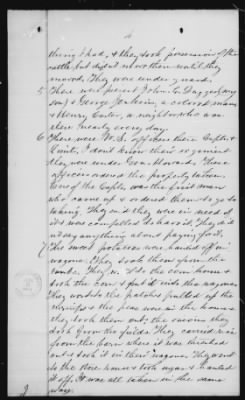 4
thing I had, & they took possession of the
cattle but did not move them until they
moved. They were under guard.
5 There were present John L. Dagger my
son & George Jenkins, a colored man
& Henry Carter, a neighbor who was
there nearly every day.
6 There were U.S. officers there Capts &
Lieuts, I don't know their regiment
they were under Gen. Howard. These
officers ordered the property taken.
One of the Capts. was the first man
who came up & ordered them to go to
taking. They said they were in need of
it & was compelled to have it. They did
not say anything about paying for it.
7 The most potatoes were hauled off in
wagons. They took them from the
They went to the corn house &
took the corn & put it into the wagons.
They went to the patches pulled up the
turnips & the peas were at the house &
they took them out; the
took from the fields. They carried rice
from the barn where it was thrashed
out & took it in their wagons. They went
to the store house & took sugar & hauled
it off. It was all taken in the same
way.